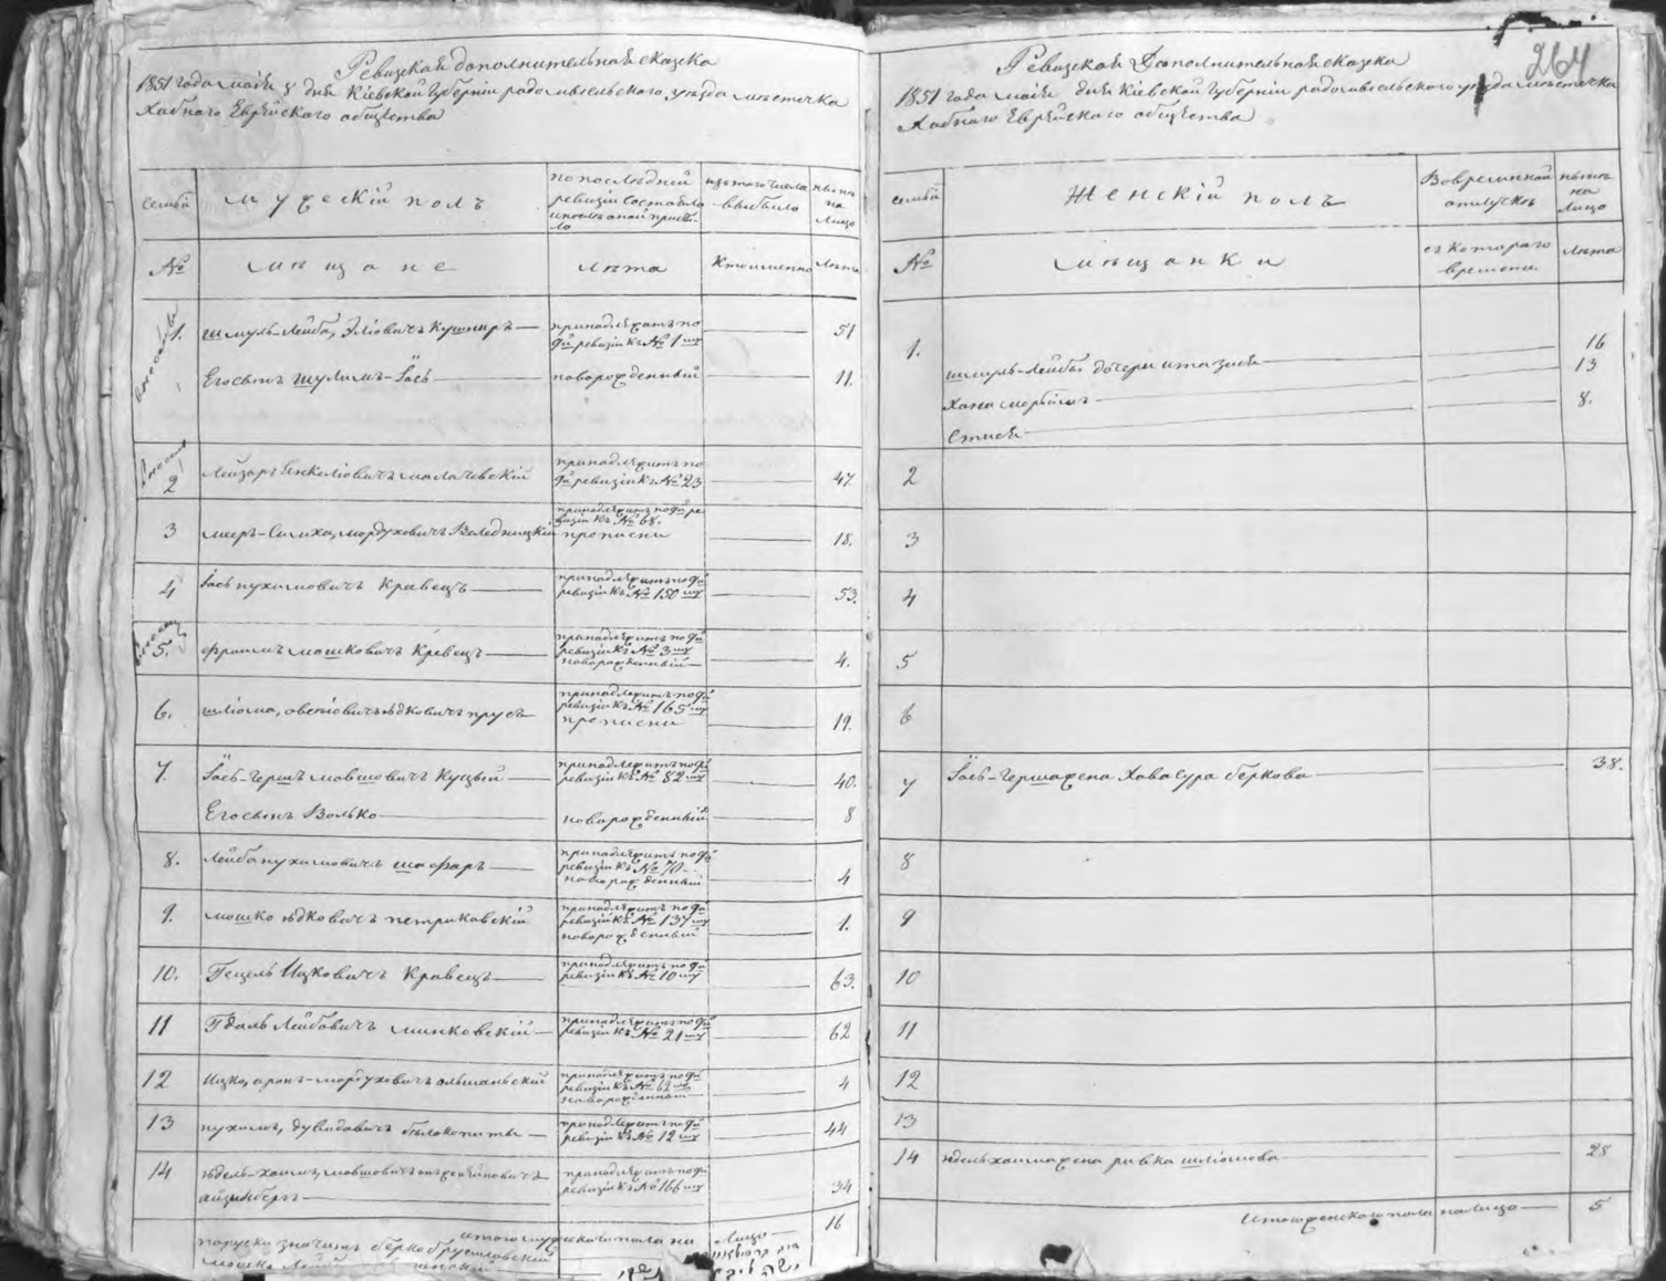 Ревизская дополнительная сказка
1851 года маія 8 дня Кіевской Губерніи радомысльского уезда местечка
Хабного Еврейского общества
семьи
мужескій полъ
по последней
ревизіи состояло
и после оной прибы-
ло
изъ того числа
выбыло
ныне
на
лицо
№
мещане
лета
Когда именно
лета
1.
шмуль-Лейба, Эліовичъ Кушниръ
принадлежатъ по
9й ревизіи къ № 1му
51
Его сынъ шулимъ-Іось
новорожденный
11.
2
Лейзоръ Янкеліовичъ малачевскій
принадлежитъ по
9й ревизіи къ № 23
47
3
мееръ-Симха, мордуховичъ
принадлежитъ по 9й ре-
визіи къ № 68.
прописки
18.
4
Іось нухимовичъ Кравецъ
принадлежитъ по 9й
ревизіи къ № 150му
53.
5.
фроимъ мошковичъ Кравецъ
принадлежитъ по 9й
ревизіи къ № 3му
новорожденный
4.
6.
шліома,
принадлежитъ по 9й
ревизіи къ № 165му
прописки
19.
7.
Іось-Гершъ мовшовичъ Куцый
принадлежитъ по 9й
ревизіи къ № 82му
40.
Его сынъ Волько
новорожденный
8
8.
Лейба нухимовичъ шафаръ
принадлежитъ по 9й
ревизіи къ № 70
новорожденный
4
9.
мошко юдковичъ петриковскій
принадлежитъ по 9й
ревизіи къ № 137му
новорожденный
1.
10.
Гецель Ицковичъ Кравецъ
принадлежитъ по 9й
ревизіи къ № 10му
63.
11
Гдаль Лейбовичъ минковскій
принадлежитъ по 9й
ревизіи къ № 21му
62
12
Ицко, аронъ-мордуховичъ ольшанскій
принадлежитъ по 9й
ревизіи къ № 62му
новорожденный
4
13
нухимъ, дувидовичъ белокопытъ
принадлежитъ по 9й
ревизіи къ № 12му
44
14
юдель-хаимъ, мовшовичъ
айзинбергъ
принадлежитъ по 9й
ревизіи къ № 166му
34
итого мужескаго пола на лицо
16
264
Ревизская Дополнительная сказка
1851 года маія дня Кіевской Губерніи радомысльского уезда местечка
Хабного Еврейского общества
семьи
Женскій полъ
Во временной
отлучке
ныне
на
лицо
№
мещанки
съ котораго
времени
лета
1.
шмуль-Лейбы дочери ита зися
16
Хана
13
8.
2
3
4
5
6
7
Іось-Герша жена Хава сура беркова
38.
8
9
10
11
12
13
14
юдель хаима жена ривка шліомова
28
Итого женского пола на лицо
5